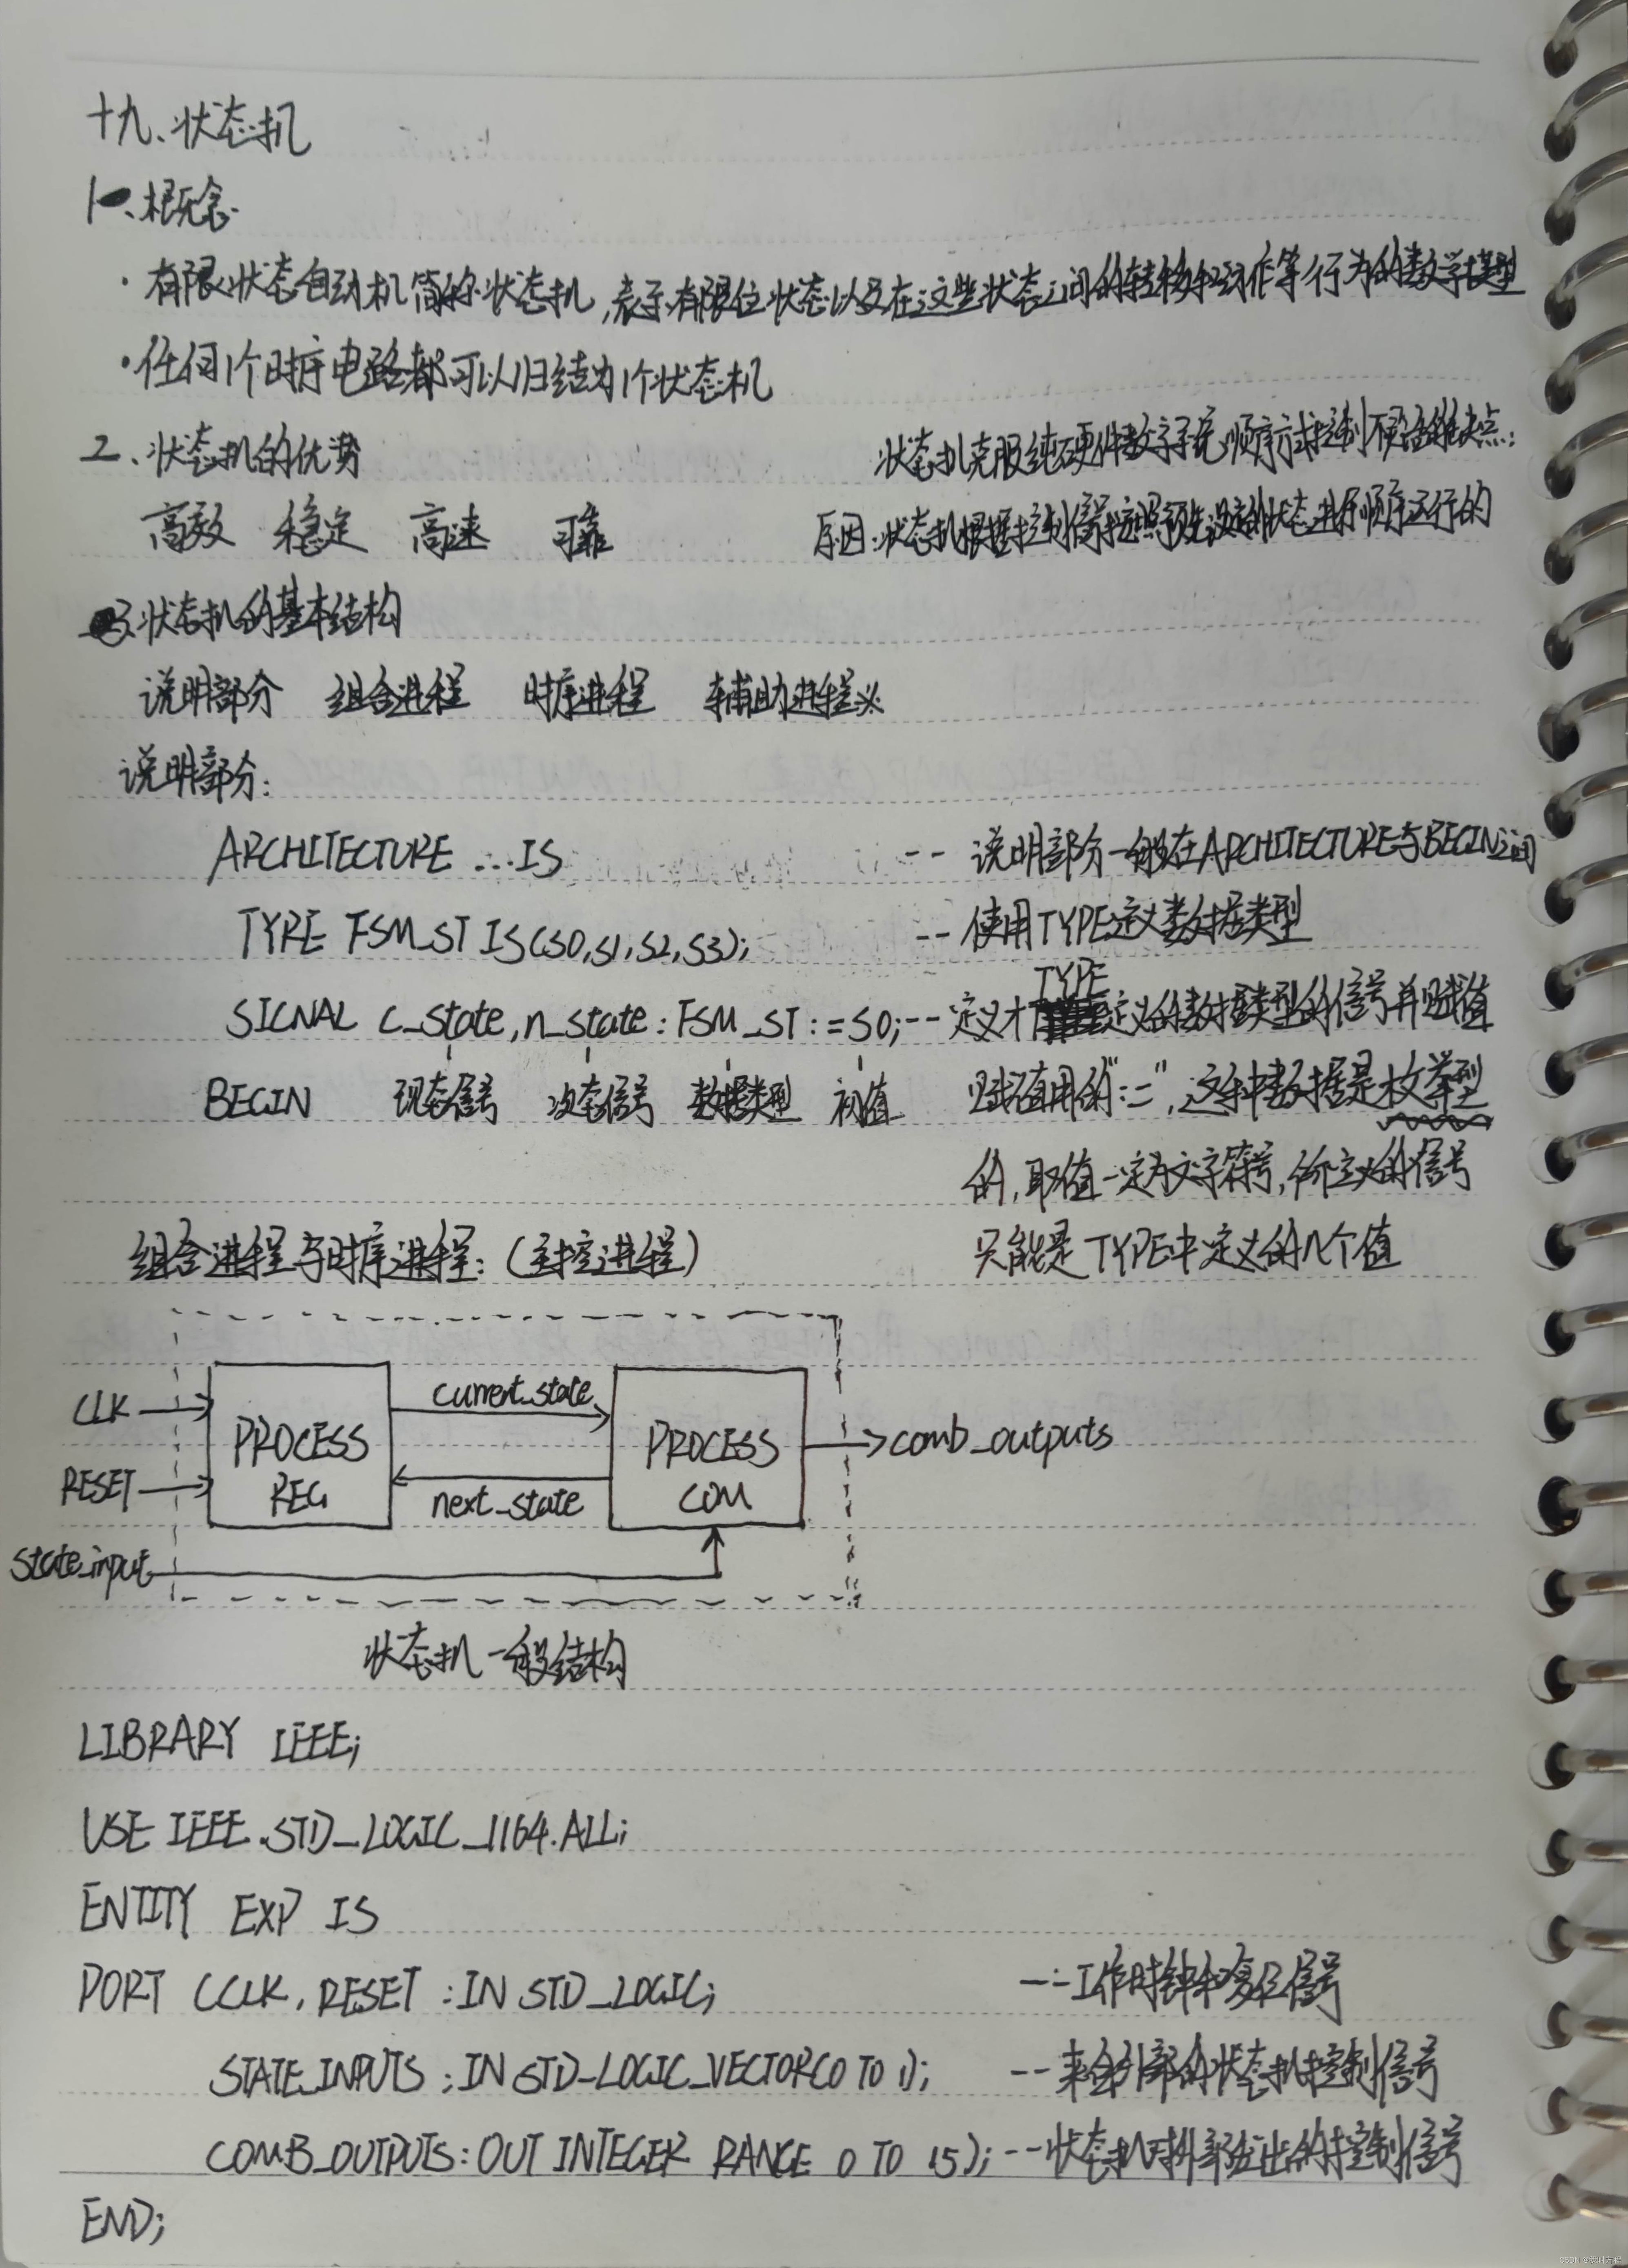 十九、状态机
1、概念
·有限状态自动机简称状态机,表示有限位状态以及在这些状态之间的转移和动作等行为的数学模型
·任何1个时序电路都可以归结为1个状态机
2、状态机的优势 状态机克服纯硬件数字系统顺序方式控制不灵活的缺点;
高效 稳定 高速 可靠 原因:状态机根据控制信号按照预先设定的状态进行顺序运行的
3、状态机的基本结构
说明部分 组合进程 时序进程 辅助进程※
说明部分:
ARCHITECTURE ...IS -- 说明部分一般在ARCHITECTURE与BEGIN之间
TYPE FSM_ST IS(S0,S1,S2,S3); -- 使用TYPE定义数据类型
SIGNAL c_state,n_state:FSM_ST:=S0;-- 定义TYPE定义的数据类型的信号并赋值
BEGIN 现态信号 次态信号 数据类型 初值 赋值用的":=",这种数据是枚举型
的,取值一定为文字符号,所定义的信号
组合进程与时序进程:(主控进程) 只能是TYPE中定义的几个值
CLK
RESET
state_input
PROCESS
REG
current_state
next_state
PROCESS
COM
comb_outputs
状态机一般结构
LIBRARY IEEE;
USE IEEE.STD_LOGIC_1164.ALL;
ENTITY EXP IS
PORT (CLK,RESET:IN STD_LOGIC; --工作时钟和复位信号
STATE_INPUTS:IN STD_LOGIC_VECTOR(0 TO 1); --来自外部的状态机控制信号
COMB_OUTPUTS:OUT INTEGER RANGE 0 TO 15);--状态机对外部发出的控制信号
END;
CSDN @我叫方程